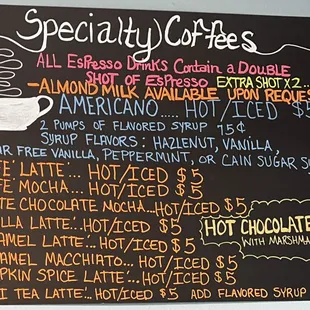 Specialty Coffees
ALL Espresso Drinks Contain a DOUBLE
SHOT OF Espresso EXTRA SHOT X 2..
-ALMOND MILK AVAILABLE UPON REQUES
AMERICANO..... HOT/ICED $5
2 PUMPS OF FLAVORED SYRUP 75¢
SYRUP FLAVORS: HAZLENUT, VANILLA,
AR FREE VANILLA, PEPPERMINT, OR CAIN SUGAR S
FE' LATTE'... HOT/ICED $5
FE' MOCHA... HOT/ICED $5
TE CHOCOLATE MOCHA... HOT/ICED $5
LLA LATTE'... HOT/ICED $5
HOT CHOCOLATE
AMEL LATTE'... HOT/ICED $5
WITH MARSHMA
AMEL MACCHIATO... HOT/ICED $5
PKIN SPICE LATTE'... HOT/ICED $5
I TEA LATTE'... HOT/ICED $5 ADD FLAVORED SYRUP